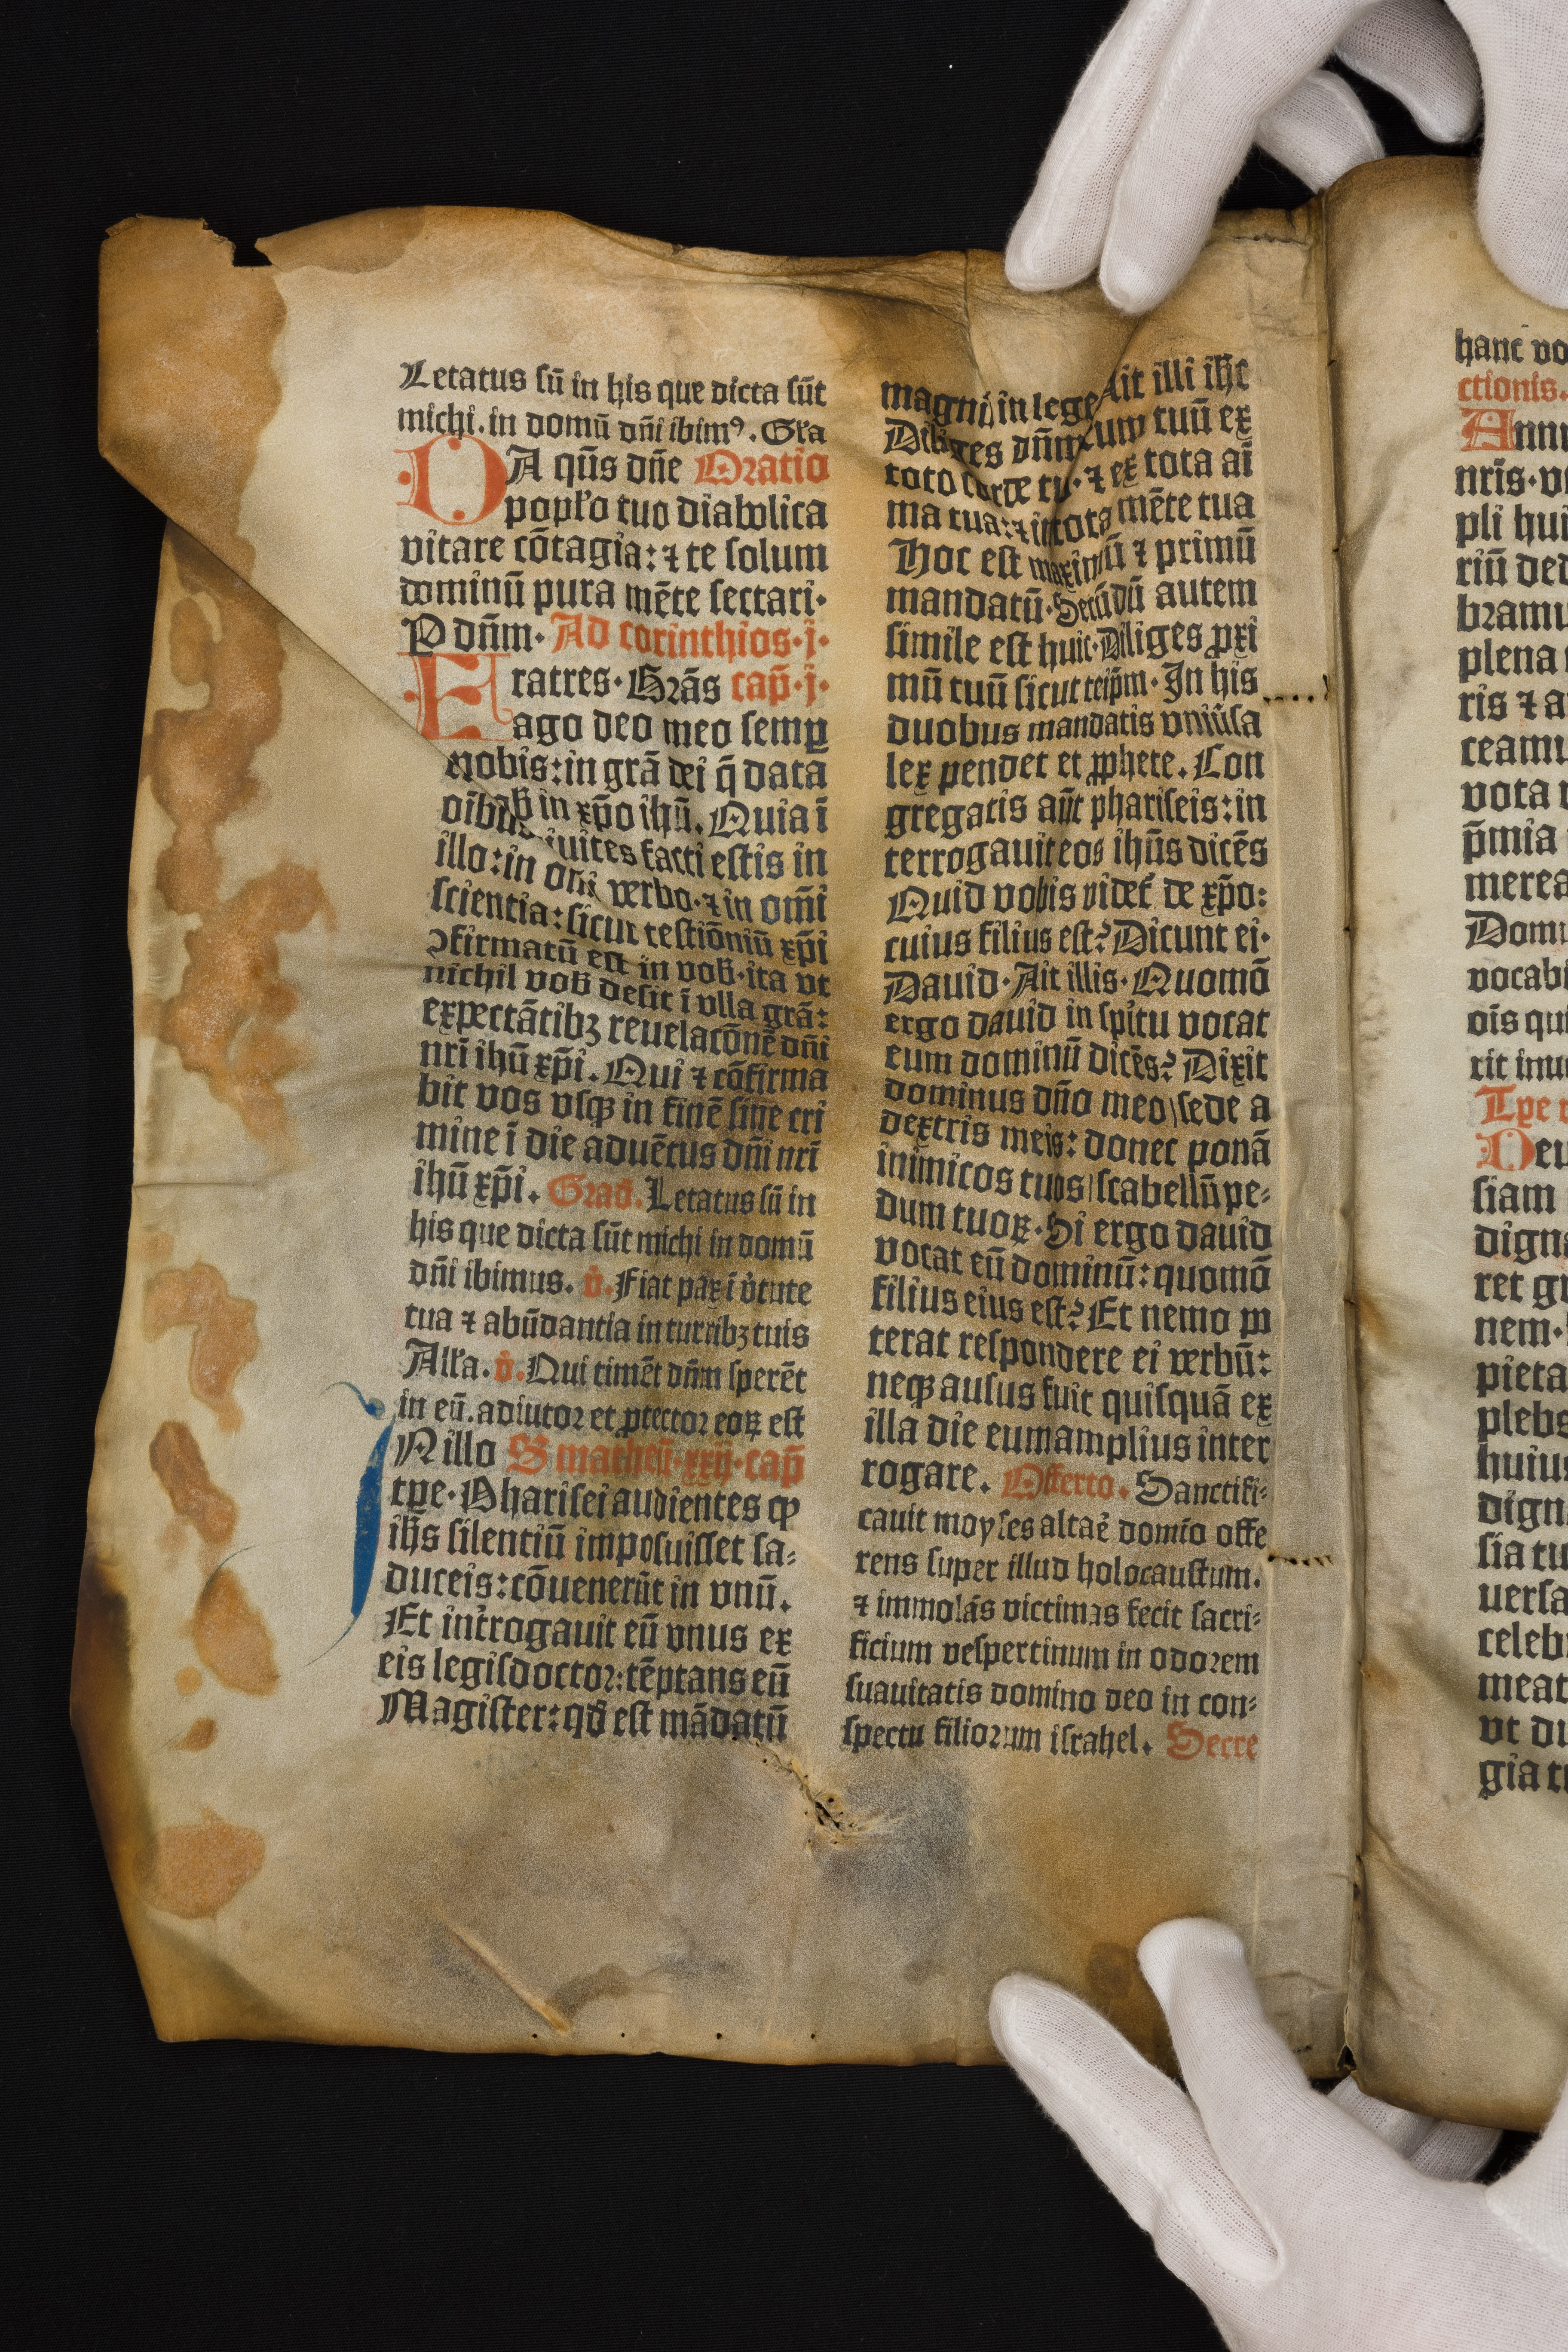 Letatus sū in his que dicta sūt
michi.in domū dñi ibimꝰ. Gła
DA qūs dñe Oratio
popło tuo diabolica
vitare cōtagia: ⁊ te solum
dominū pura mēte sectari·
P dñm· Ad corinthios·j·
Fratres·Grās cap̄·j·
ago deo meo semꝑ
ꝓ nobis:in grā dei q̄ data
in xp̄o ihū. Quia ī
illo:in diuites facti estis in
oñi verbo·⁊ in omī
scientia:sicut testīoniū xp̄i
ꝯfirmatū est in vob̄·ita vt
nichil vob̄ desit ī vlla grā:
expectātibꝫ reuelacōnē dñi
nr̄i ihū xp̄i. Qui ⁊ cōfirma
bit vos vsqꝫ in finē sine cri
mine ī die aduētus dñi nr̄i
ihū xp̄i. Grad̄. Letatus sū in
his que dicta sūt michi in domū
dñi ibimus. v̓. Fiat pax ī v̓tute
tua ⁊ abūdantia in turribꝫ tuis
Alła. v̓. Qui timēt dñm sperēt
in eū.adiutor et ꝓtector eoꝝ est
IN illo S matheū·xxij·cap̄
tꝑe·Pharisei audientes ꝙ
ihs̄ silentiū imposuisset sa⸗
duceis:cōuenerūt in vnū.
Et int̓rogauit eū vnus ex
eis legisdoctor:tēptans eū
Magister:qd̄ est mādatū
magnū in lege Ait illi ihc̄
Diliges dñm tuum ex
toto corde tuo·⁊ ex tota aī
ma tua:⁊ in tota mēte tua
Hoc est maximū ⁊ primū
mandatū·Secūdū autem
simile est huic·Diliges ꝓxi
mū tuū sicut teip̄m· In his
duobus mandatis vniūsa
lex pendet et ꝓphete. Con
gregatis aūt phariseis:in
terrogauit eos ihūs dicēs
Quid vobis videt̓ de xp̄o:
cuius filius est? Dicunt ei·
Dauid· Ait illis· Quomō
ergo dauid in spitu vocat
eum dominū dicēs? Dixit
dominus dño meo/sede a
dextris meis: donec ponā
inimicos tuos/scabellū pe⸗
dum tuoꝝ·Si ergo dauid
vocat eū dominū:quomō
filius eius est? Et nemo po
terat respondere ei verbū:
neqꝫ ausus fuit quisquā ex
illa die eum amplius inter
rogare. Offerto. Sanctifi⸗
cauit moyses altaē domīo offe
rens super illud holocaustum.
⁊ immolās victimas fecit sacri⸗
ficium vespertinum in odorem
suauitatis domino deo in con⸗
spectu filiorum israhel. Secre
hanc vo
ctionis.
Annu
nr̄is·v
pli hui
riū ded
bramu
plena
ris ⁊ a
ceamu
vota
p̄mia
merea
Domi
vocabi
oīs qui
rit inu
Tꝑe
Deu
siam
digna
ret gr
nem·
pieta
plebs
huius
dign
sia tu
uersa
celebr
meat
vt di
gia tu